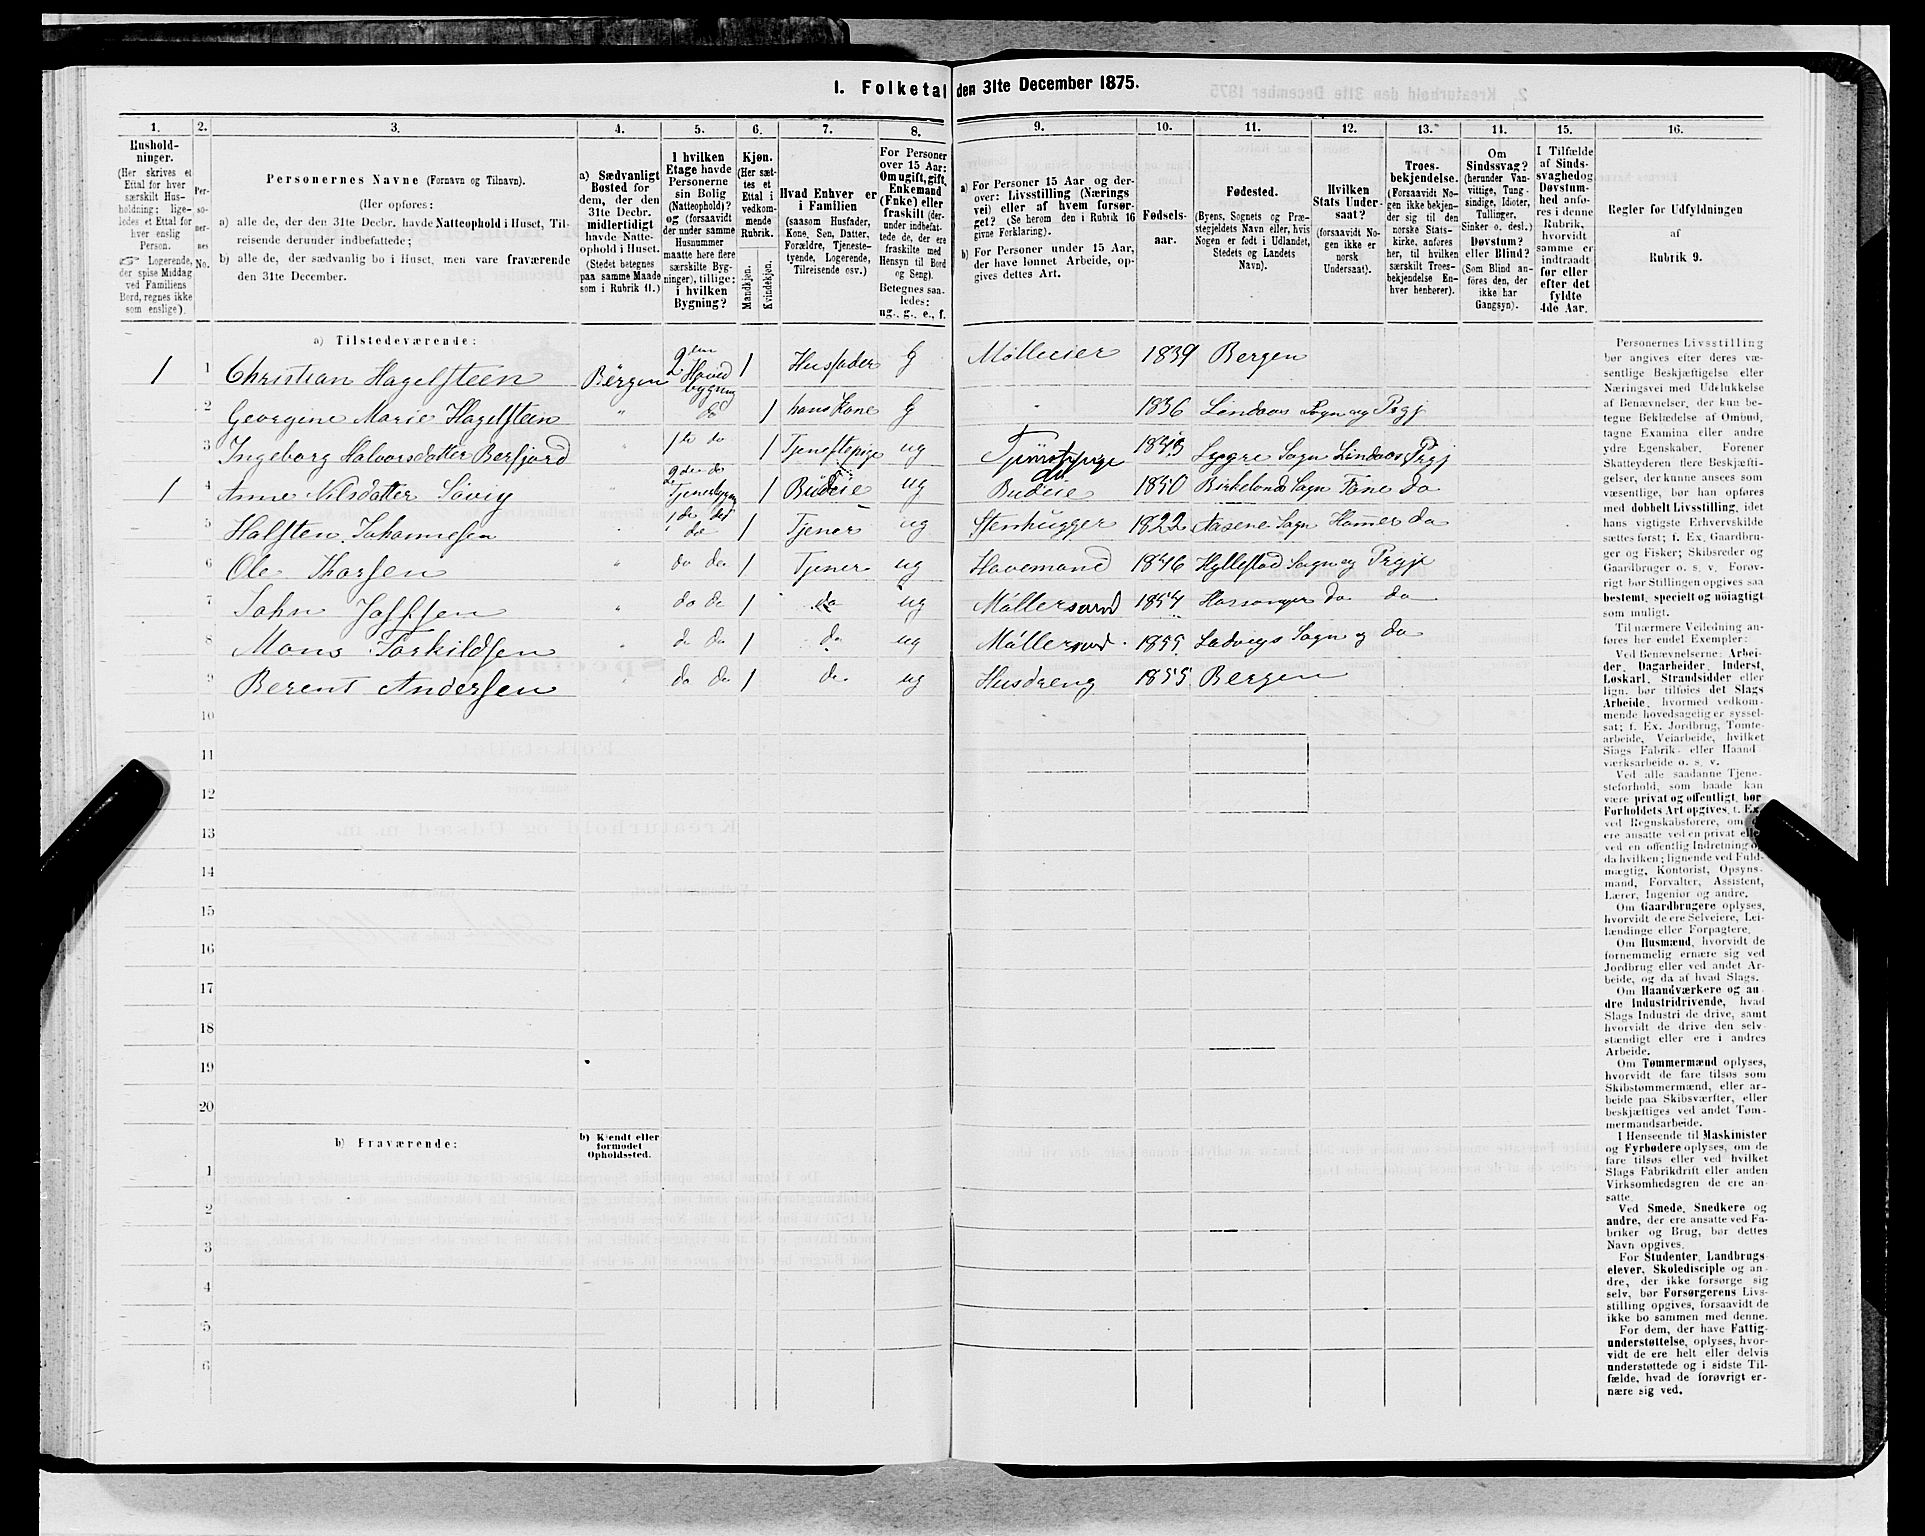 I. Folketal den 31te December 1875.
1. 2. 3. 4. 5. 6. 7. 8. 9. 10. 11. 12. 13. 14. 15. 16.
Hushold-
ninger.
(Her skrives et
Ettal for hver
særskilt Hus-
holdning; lige-
ledes et Ettal for
hver enslig
Person.
☞ Logerende,
der spise Middag
ved Familiens
Bord, regnes ikke
som enslige).
Per-
so-
ner-
nes
No.
Personernes Navne (Fornavn og Tilnavn).
(Her opføres:
a) alle de, der den 31te Decbr. havde Natteophold i Huset, Til-
reisende derunder indbefattede;
b) alle de, der sædvanlig bo i Huset, men vare fraværende
den 31te December.
a) Sædvanligt
Bosted for
dem, der den
31te Decbr.
midlertidigt
havde Natte-
ophold i Huset.
(Stedet betegnes
paa samme Maade
som i Rubrik 11.)
I hvilken
Etage havde
Personerne
sin Bolig
(Natteophold)?
og (forsaavidt
der under samme
Husnummer
maatte høre flere
særskilte Byg-
ninger), tillige:
i hvilken
Bygning?
Kjøn.
(Her sæt-
tes et
Ettal i
vedkom-
mende
Rubrik.
Mandkjøn.
Kvindekjøn.
Hvad Enhver er
i Familien
(saasom Husfader,
Kone, Søn, Datter,
Forældre, Tjeneste-
tyende, Logerende,
Tilreisende osv.)
For Personer
over 15 Aar:
Om ugift, gift,
Enkemand
(Enke) eller
fraskilt (der-
under indbefat-
tede de, der ere
fraskilte med
Hensyn til Bord
og Seng).
Betegnes saa-
ledes:
ug., g., e., f.
a) For Personer 15 Aar og der-
over: Livsstilling (Nærings
vei) eller af hvem forsør-
get? (Se herom den i Rubrik 16
givne Forklaring).
b) For Personer under 15 Aar,
der have lønnet Arbeide, op-
gives dettes Art.
Fødsels-
aar.
Fødested.
(Byens, Sognets og Præ-
stegjeldets Navn eller, hvis
Nogen er født i Udlandet,
Stedets og Landets
Navn).
Hvilken
Stats Under-
saat?
(forsaavidt No-
gen ikke er
norsk
Undersaat).
Troes-
bekjendelse.
(Forsaavidt No-
gen ikke bekjen-
der sig til den
norske Stats-
kirke, anføres
her, til hvilken
særskilt Troes-
bekjendelse En-
hver henhører).
Om
Sindssvag?
(herunder Van-
vittige, Tung-
sindige, Idioter,
Tullinger,
Sinker o. desl.)
Døvstum?
eller Blind?
(Som Blind an-
føres den, der
ikke har
Gangsyn).
I Tilfælde
af Sinds-
svaghed og
Døvstum-
hed anfø-
res i denne
Rubrik,
hvorvidt
samme er
indtraadt
før eller
efter det
fyldte
4de Aar.
Regler for Udfyldningen
af
Rubrik 9.
a) Tilstedeværende:
1 1 Christian Hagelsteen Bergen 2den Hovedbygning 1 Husfader G Mölleeier 1839 Bergen
2 Georgine Marie Hagelsteen " do 1 hans Kone G " 1836 Lindaas Sogn og Prgj
3 Ingeborg Halvorsdatter Berfjord " 1te do 1 Tjenestepige ug Tjenestepige 1843 Lygre Sogn Lindaas Prgj
1 4 Anne Nilsdatter Sövig 1 Budeie ug Budeie 1850 Birkelands Sogn Fane do
5 Halsten Johannesen " do 1 Tjener ug Stenhugger 1822 Aasene Sogn Hammer do
6 Ole Thorsen " do do 1 Tjener ug Havemand 1846 Hyllestad Sogn og Prgj
7 John Joffsen " do do 1 do ug Möllersvend 1854 Hossanger do do
8 Mons Torkildsen " do do 1 do ug Möllersvend 1855 Ladvigs Sogn og do
9 Berent Andersen " do do 1 do ug Husdreng 1855 Bergen
10
11
12
13
14
15
16
17
18
19
20
b) Fraværende:
b) Kjendt eller
formodet
Opholdssted.
1
2
3
4
5
6
Personernes Livsstilling
bør angives efter deres væ-
sentlige Beskjæftigelse eller
Næringsvei med Udelukkelse
af Benævnelser, der kun be-
tegne Beklædelse af Ombud,
tagne Examina eller andre
ydre Egenskaber. Forener
Skatteyderen flere Beskjæfti-
gelser, der kunne ansees som
væsentlige, bør han opføres
med dobbelt Livsstilling, idet
hans vigtigste Erhvervskilde
sættes først; f. Ex. Gaardbru-
ger og Fisker; Skibsreder og
Gaardbruger o. s. v. Forøv-
rigt bør Stillingen opgives saa
bestemt, specielt og nøiagtigt
som muligt.
Til nærmere Veiledning an-
føres her endel Exempler:
Ved Benævnelserne: Arbei-
der, Dagarbeider, Inderst,
Løskarl, Strandsidder eller
lign. bør tilføies det Slags
Arbeide, hvormed vedkom-
mende hovedsagelig er syssel-
sat; f. Ex. Jordbrug, Tomte-
arbeide, Veiarbeide, hvilket
Slags Fabrik- eller Haand-
værksarbeide o. s. v.
Ved alle saadanne Tjene-
steforhold, som baade kan
være privat og offentligt, bør
Forholdets Art opgives, t. Ex.
ved Regnskabsførere, om de
ere ansatte ved en privat eller
ved en offentlig Indretning og
da hvilken; lignende ved Fuld-
mægtig, Kontorist, Opsyns-
mand, Forvalter, Assistent,
Lærer, Ingeniør og andre.
Om Gaardbrugere oplyses,
hvorvidt de ere Selveiere, Lei-
lændinge eller Forpagtere.
Om Husmænd, hvorvidt de
fornemmelig ernære sig ved
Jordbrug eller ved andet Ar-
beide, og da af hvad Slags.
Om Haandværkere og an-
dre Industridrivende, hvad
Slags Industri de drive, samt
hvorvidt de drive den selv-
stændigt eller ere i andres
Arbeide.
Om Tømmermænd oplyses,
hvorvidt de fare tilsøs som
Skibstømmermænd, eller ar-
beide paa Skibsværfter, eller
beskjæftiges ved andet Tøm-
mermandsarbeide.
I Henseende til Maskinister
og Fyrbødere oplyses, om de
fare tilsøs eller ved hvilket
Slags Fabrikdrift eller anden
Virksomhedsgren de ere an-
satte.
Ved Smede, Snedkere og
andre, der ere ansatte ved Fa-
briker og Brug, bør dettes
Navn opgives.
For Studenter, Landbrugs-
elever, Skoledisciple og an-
dre, der ikke forsørge sig
selv, bør Forsørgerens Livs-
stilling opgives, forsaavidt de
ikke bo sammen med denne.
For dem, der have Fattig-
understøttelse, oplyses, hvor-
vidt de ere helt eller delvis
understøttede og i sidste Til-
fælde, hvad de forøvrigt er-
nære sig ved.